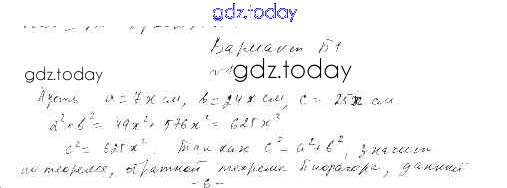 gdz.today
Вариант Б1
gdz.today
№1 gdz.today
Пусть a = 7x см, b = 24x см, c = 25x см
a² + b² = 49x² + 576x² = 625x²
c² = 625x². Так как c² = a² + b², значит
по теореме, обратной теореме Пифагора, данный
- 6 -